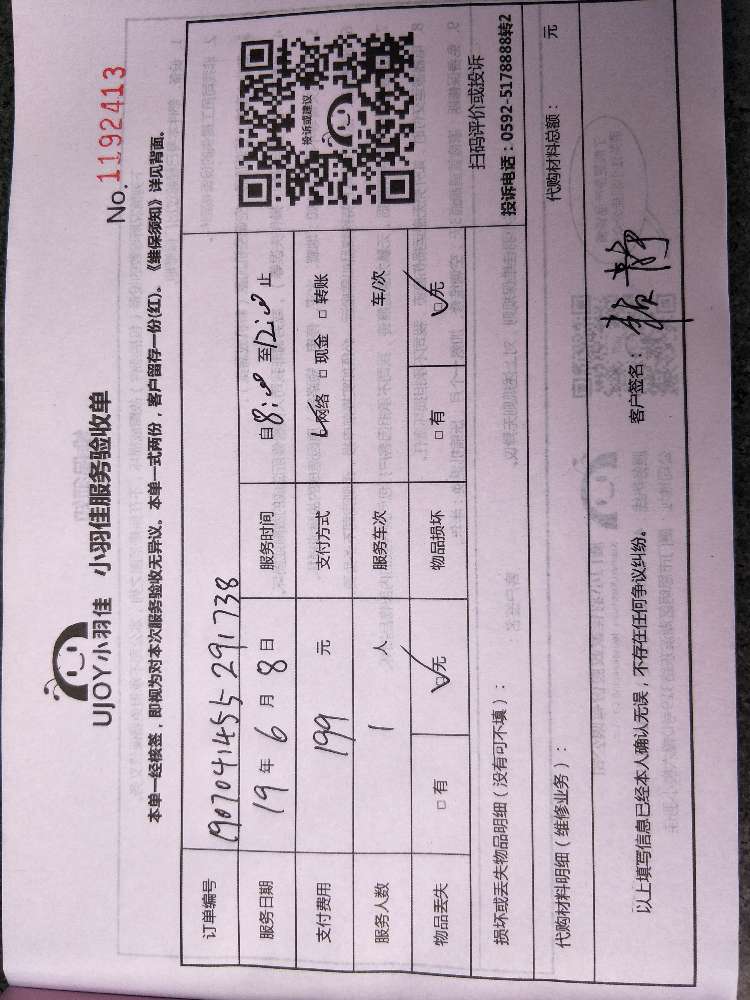 UJOY小羽佳 小羽佳服务验收单
No.1192413
本单一经核签，即视为对本次服务验收无异议。本单一式两份，客户留存一份(红)。《维保须知》详见背面。
订单编号 1907041455291738
服务日期 19年6月8日 服务时间 自8:00至12:00止
支付费用 199元 支付方式 □网络 □现金 □转账
服务人数 1人 服务车次 车/次
物品丢失 □有 □无 物品损坏 □有 □无
投诉或建议
扫码评价或投诉
投诉电话：0592-5178888转2
损坏或丢失物品明细（没有可不填）：
代购材料明细（维修业务）： 代购材料总额： 元
以上填写信息已经本人确认无误，不存在任何争议纠纷。 客户签名：